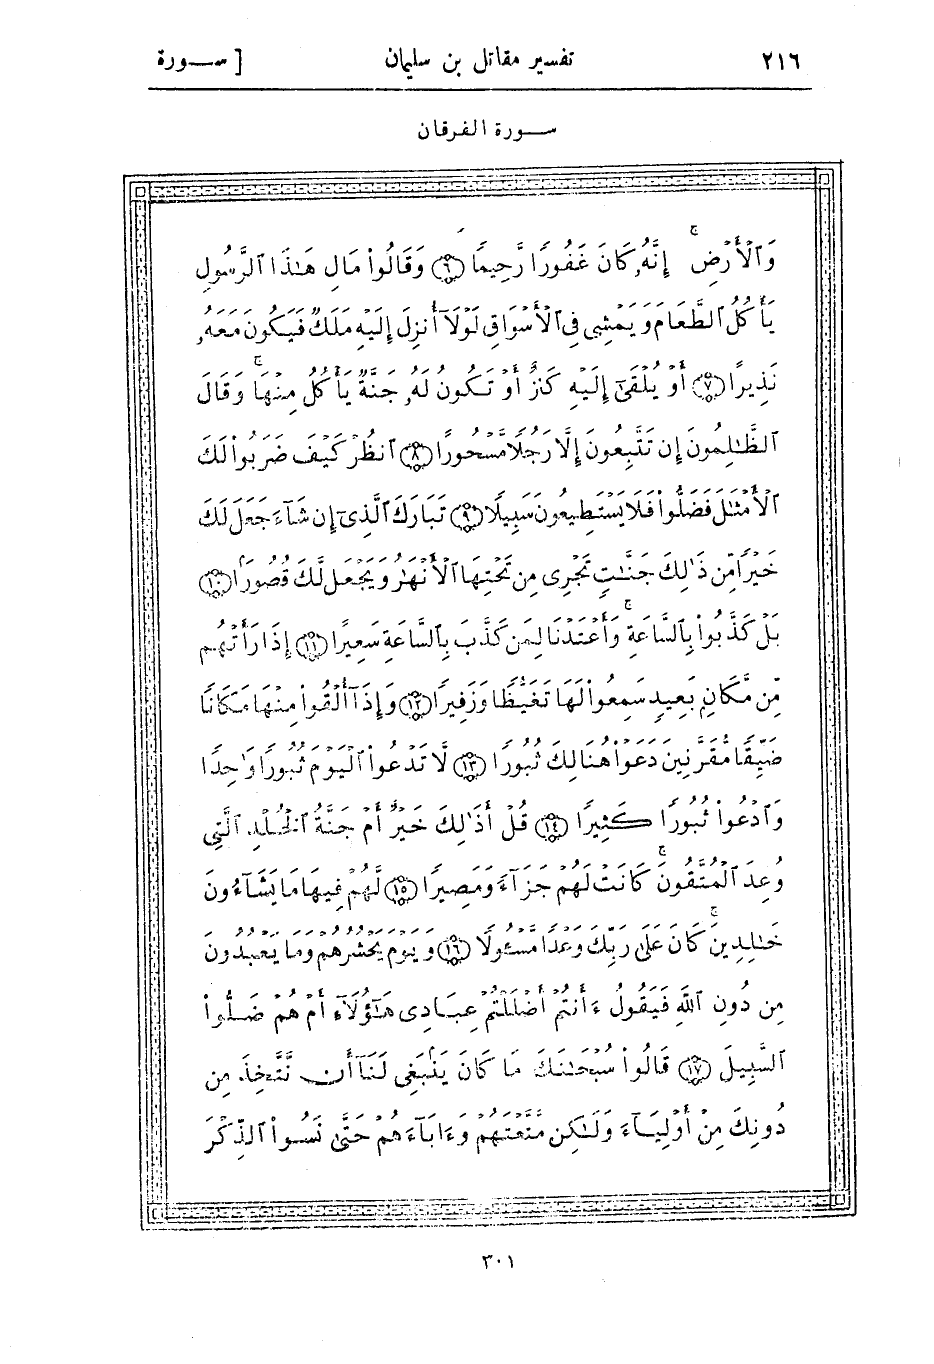 ٢١٦ تفسير مقاتل بن سليمان [ ســورة
ســورة الفرقان
وَٱلْأَرْضِ ۚ إِنَّهُۥ كَانَ غَفُورًا رَّحِيمًا ٦ وَقَالُوا۟ مَالِ هَـٰذَا ٱلرَّسُولِ
يَأْكُلُ ٱلطَّعَامَ وَيَمْشِى فِى ٱلْأَسْوَاقِ لَوْلَآ أُنزِلَ إِلَيْهِ مَلَكٌ فَيَكُونَ مَعَهُۥ
نَذِيرًا ٧ أَوْ يُلْقَىٰٓ إِلَيْهِ كَنزٌ أَوْ تَكُونُ لَهُۥ جَنَّةٌ يَأْكُلُ مِنْهَا ۚ وَقَالَ
ٱلظَّـٰلِمُونَ إِن تَتَّبِعُونَ إِلَّا رَجُلًا مَّسْحُورًا ٨ ٱنظُرْ كَيْفَ ضَرَبُوا۟ لَكَ
ٱلْأَمْثَـٰلَ فَضَلُّوا۟ فَلَا يَسْتَطِيعُونَ سَبِيلًا ٩ تَبَارَكَ ٱلَّذِىٓ إِن شَآءَ جَعَلَ لَكَ
خَيْرًا مِّن ذَٰلِكَ جَنَّـٰتٍ تَجْرِى مِن تَحْتِهَا ٱلْأَنْهَـٰرُ وَيَجْعَل لَّكَ قُصُورًۢا ١٠
بَلْ كَذَّبُوا۟ بِٱلسَّاعَةِ ۖ وَأَعْتَدْنَا لِمَن كَذَّبَ بِٱلسَّاعَةِ سَعِيرًا ١١ إِذَا رَأَتْهُم
مِّن مَّكَانٍۭ بَعِيدٍ سَمِعُوا۟ لَهَا تَغَيُّظًا وَزَفِيرًا ١٢ وَإِذَآ أُلْقُوا۟ مِنْهَا مَكَانًا
ضَيِّقًا مُّقَرَّنِينَ دَعَوْا۟ هُنَالِكَ ثُبُورًا ١٣ لَّا تَدْعُوا۟ ٱلْيَوْمَ ثُبُورًا وَٰحِدًا
وَٱدْعُوا۟ ثُبُورًا كَثِيرًا ١٤ قُلْ أَذَٰلِكَ خَيْرٌ أَمْ جَنَّةُ ٱلْخُلْدِ ٱلَّتِى
وُعِدَ ٱلْمُتَّقُونَ ۚ كَانَتْ لَهُمْ جَزَآءً وَمَصِيرًا ١٥ لَّهُمْ فِيهَا مَا يَشَآءُونَ
خَـٰلِدِينَ ۚ كَانَ عَلَىٰ رَبِّكَ وَعْدًا مَّسْـُٔولًا ١٦ وَيَوْمَ يَحْشُرُهُمْ وَمَا يَعْبُدُونَ
مِن دُونِ ٱللَّهِ فَيَقُولُ ءَأَنتُمْ أَضْلَلْتُمْ عِبَادِى هَـٰٓؤُلَآءِ أَمْ هُمْ ضَلُّوا۟
ٱلسَّبِيلَ ١٧ قَالُوا۟ سُبْحَـٰنَكَ مَا كَانَ يَنۢبَغِى لَنَآ أَن نَّتَّخِذَ مِن
دُونِكَ مِنْ أَوْلِيَآءَ وَلَـٰكِن مَّتَّعْتَهُمْ وَءَابَآءَهُمْ حَتَّىٰ نَسُوا۟ ٱلذِّكْرَ
٣٠١